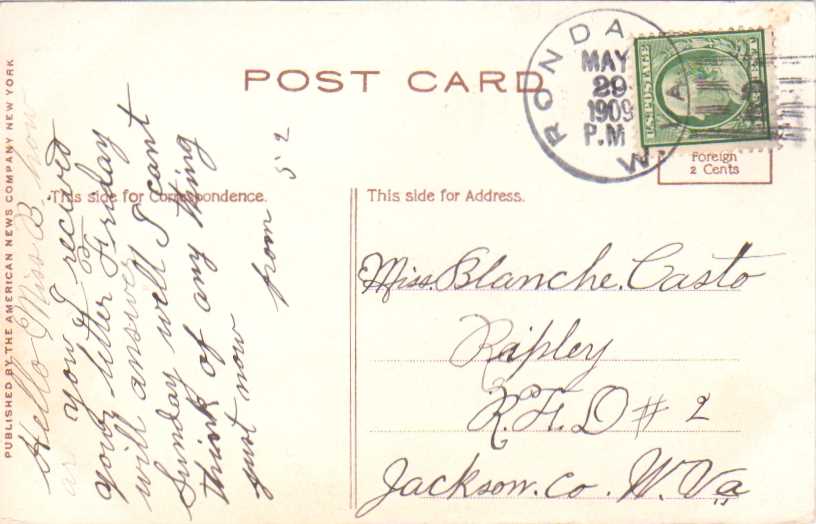 POST CARD
RONDA
W. VA.
MAY
29
1909
P.M
U.S. POSTAGE
Foreign
2 Cents
This side for Correspondence.
This side for Address.
PUBLISHED BY THE AMERICAN NEWS COMPANY NEW YORK
Hello Miss B. how
are you I recieved
your letter Friday
will answer
Sunday well I cant
think of any thing
just now
from 52
Miss. Blanche. Casto
Ripley
R.F.D # 2
Jackson. Co. W. Va